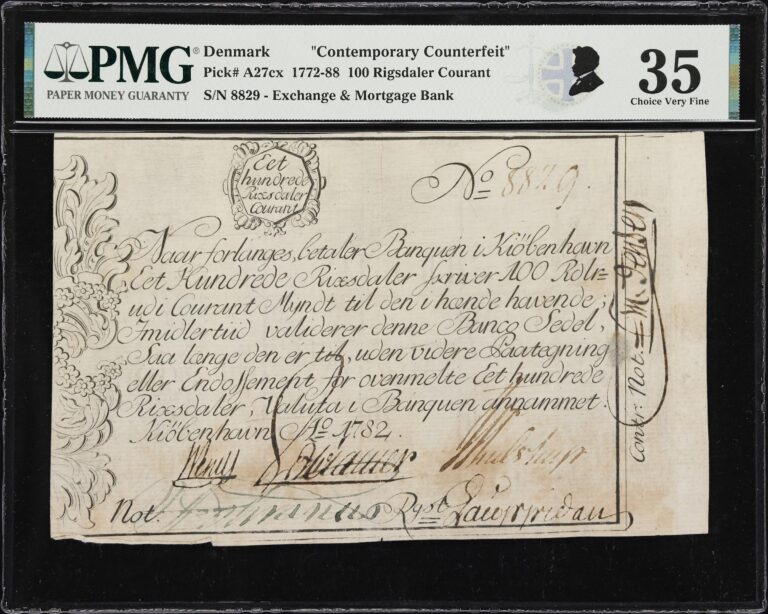 PMG® Denmark "Contemporary Counterfeit"
PAPER MONEY GUARANTY
Pick# A27cx 1772-88 100 Rigsdaler Courant
S/N 8829 - Exchange & Mortgage Bank
35
Choice Very Fine
Eet
hundrede
Rixsdaler
Courant
No 8829.
Naar forlanges, betaler Banquen i Kiöbenhavn
Eet Hundrede Rixsdaler skriver 100 Rdlr.
ud i Courant Myndt til den i hænde havende;
Imidlertiid validerer denne Banco Sedel,
Saa længe den er til, uden videre Paategning
eller Endossement for ovenmelte Eet hundrede
Rixsdaler, Valuta i Banquen annammet.
Kiöbenhavn Ao 1782.
Not.
Rgst
Contr: Not: M. Jensen